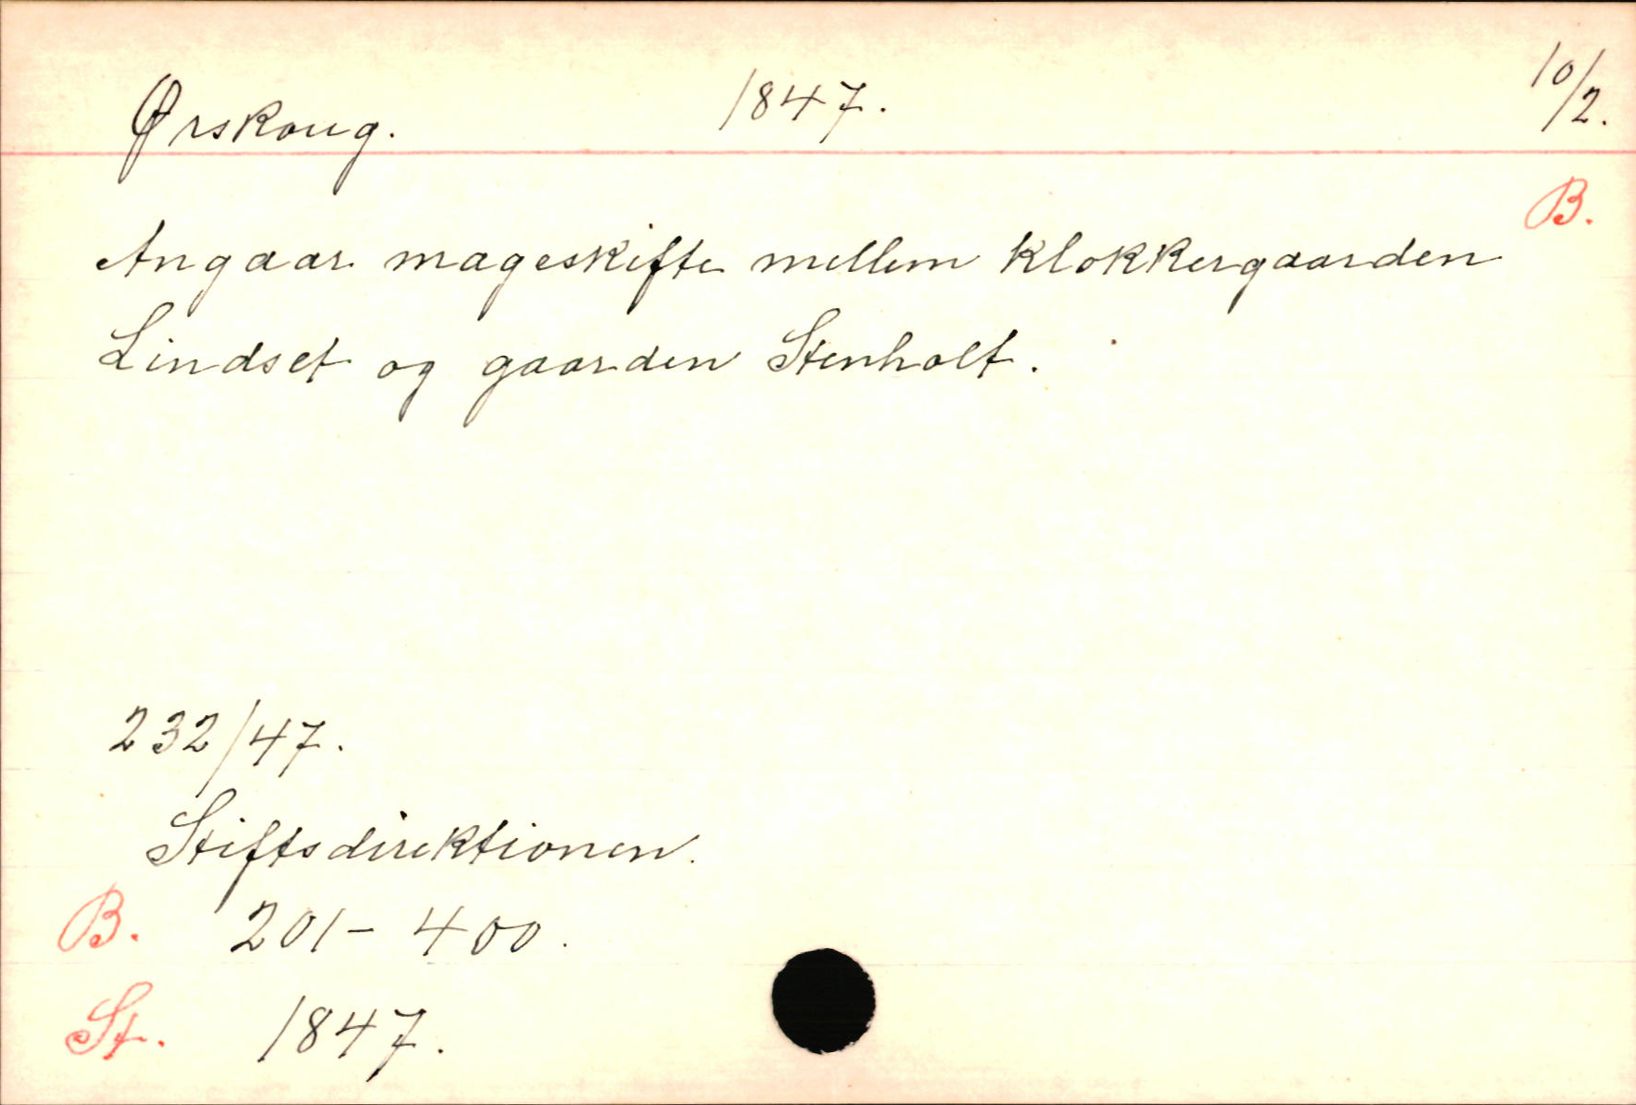 Ørskoug. 1847. 10/2.
B.
Angaar mageskifte mellem klokkergaarden
Lindset og gaarden Stenholt.
232/47.
Stiftsdirektionen.
B. 201-400.
St. 1847.